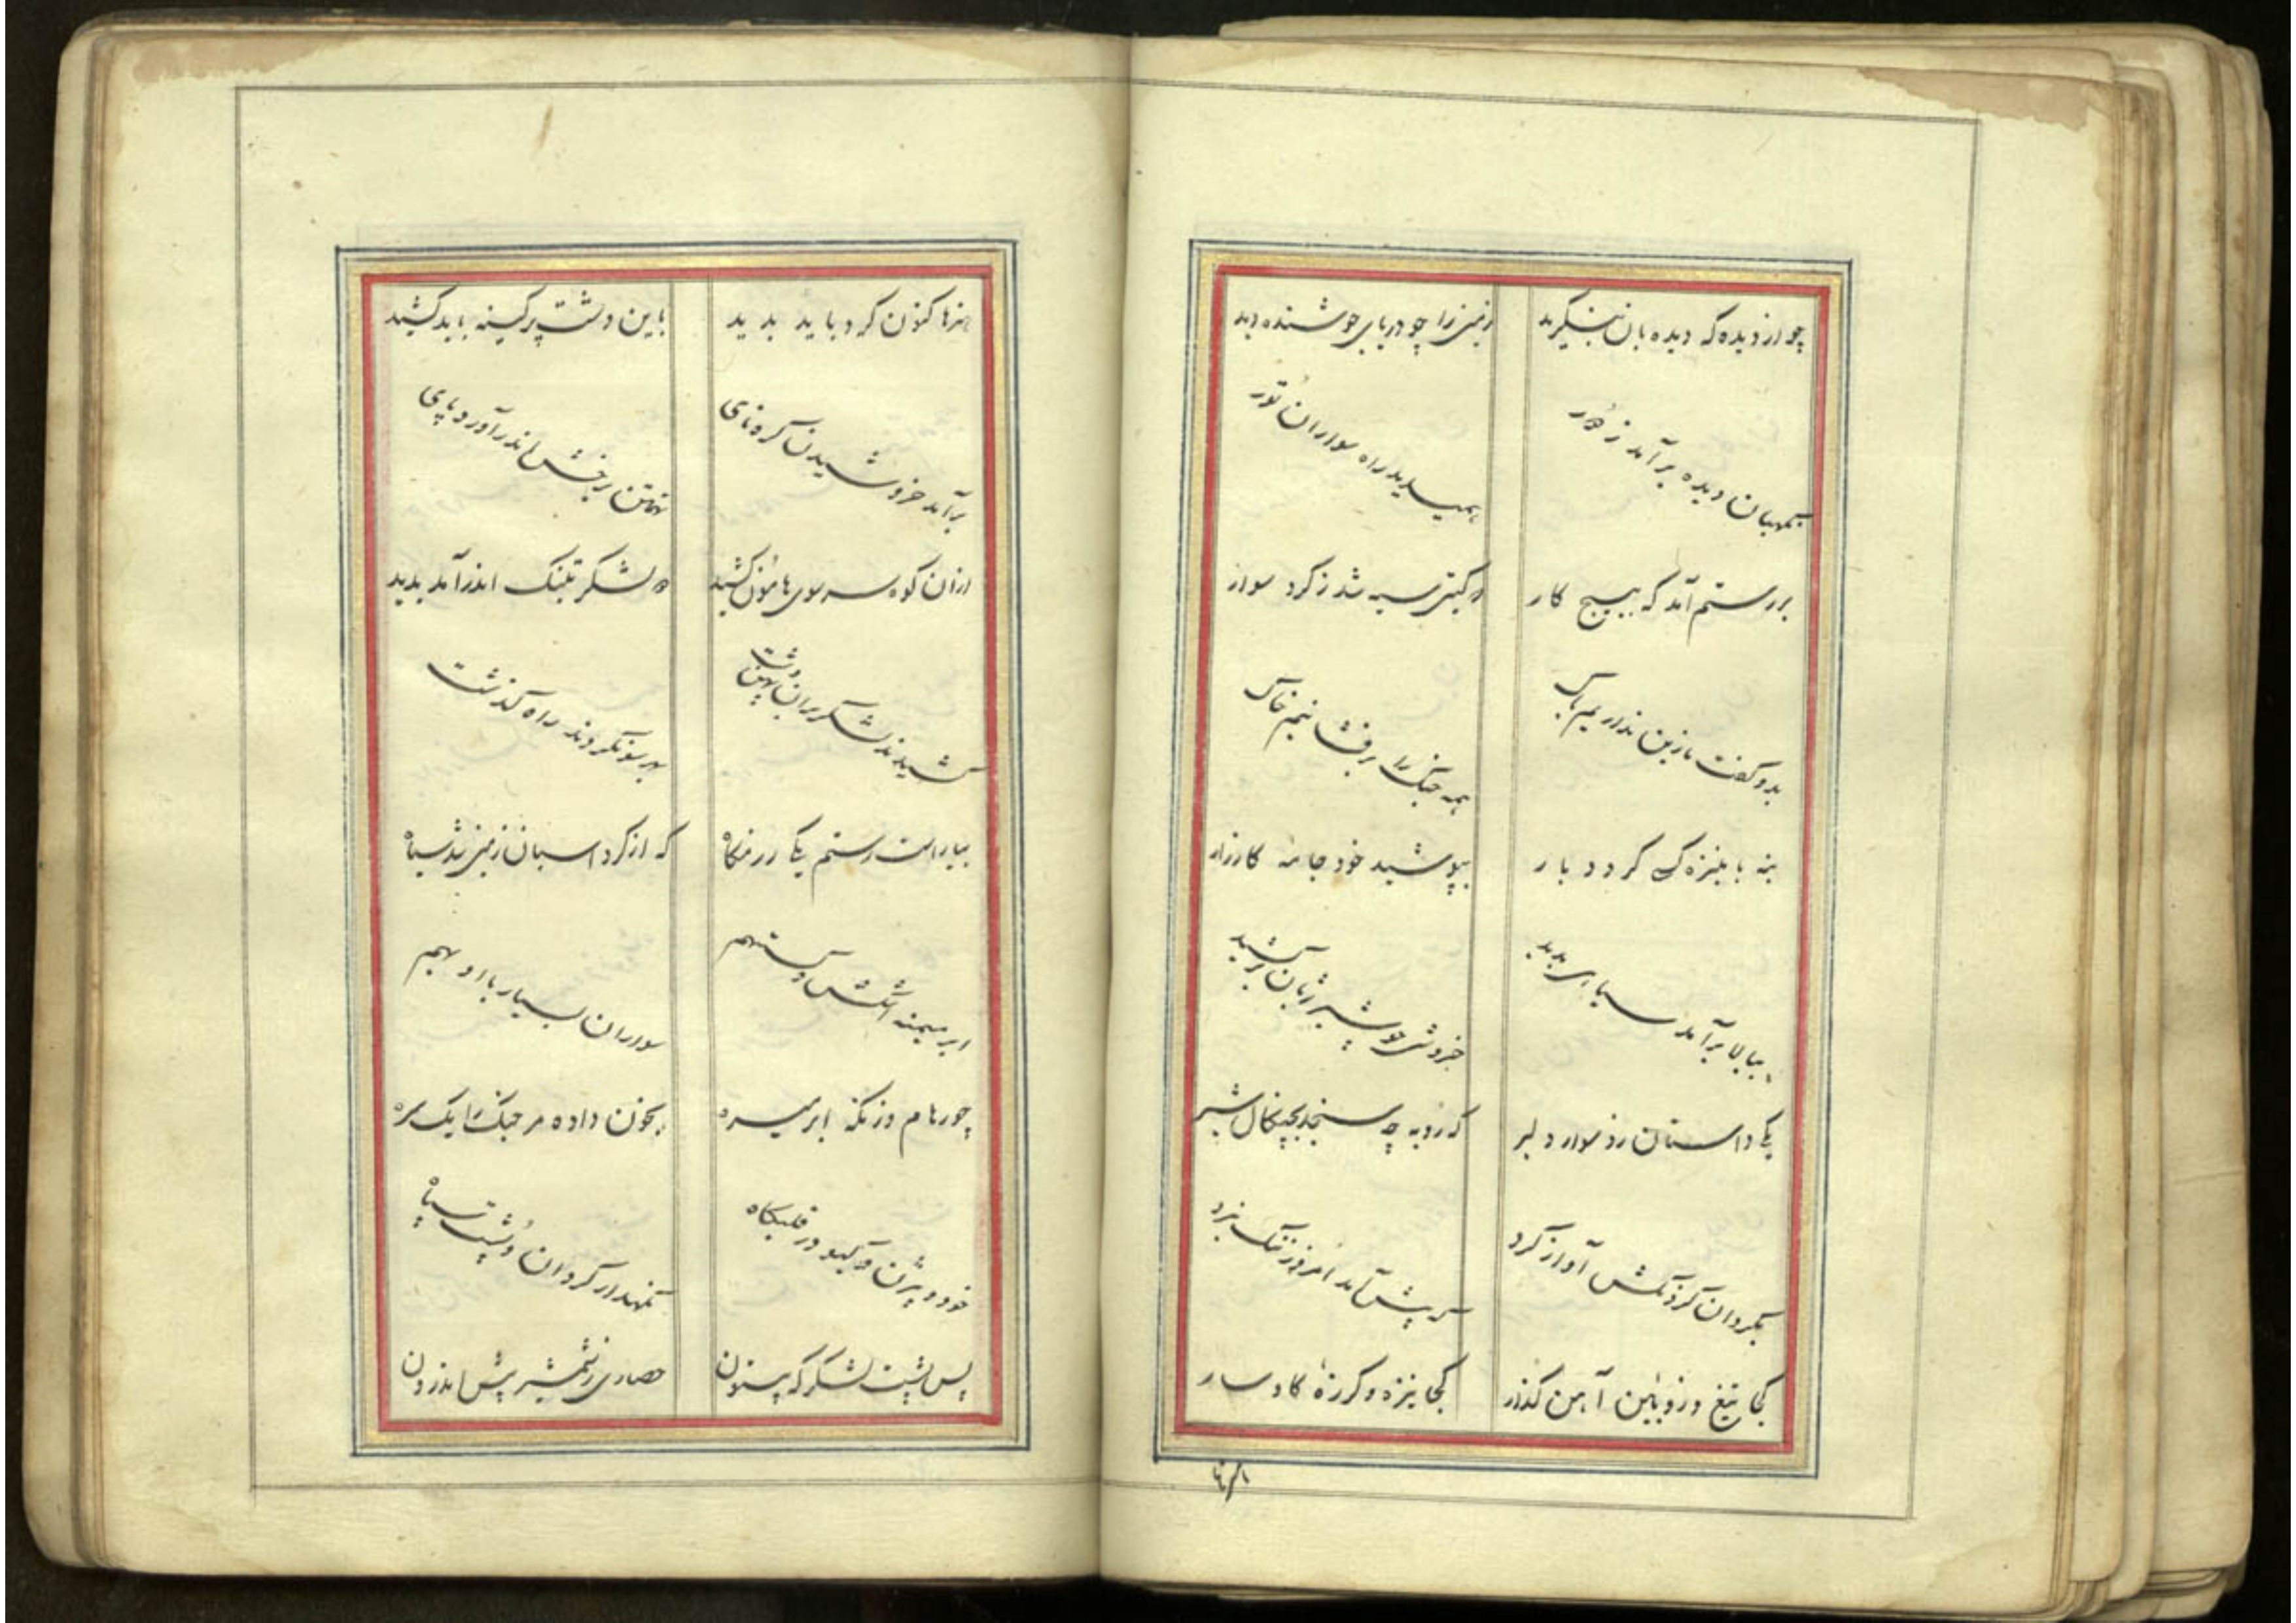 چو از دیده‌که دیده‌بان بنگرید زمین را چو دریای جوشنده دید
نگهبان دیده برآمد ز هور همیدید راه سواران تور
بر رستم آمد که بسیج کار که گیتی سیه شد ز کرد سوار
بدو گفت ما زین نداریم باک همه جنگ را برفشانیم خاک
بنه با بنیزه ک کرد و بار بپوشید خود جامه کارزار
ببالا برآمد سپاهی بدید خروشی چو شیر ژیان برکشید
یکی داستان زد سوار دلیر که روبه چه سنجد بچنگال شیر
بگردان گردنکش آواز کرد که پیش آمد امروز ننگ نبرد
کجا تیغ و زوبین آهن گذار کجا نیزه و گرزهٔ گاوسار
هنرها کنون کرد باید بدید باین دشت پرکینه باید کشید
برآمد خروشیدن کرونای تهمتن برخش اندر آورد پای
ازان کوه سر سوی هامون کشید که لشکر بتنگ اندر آمد بدید
کشیدند لشکر بران پهن دشت بهر سو نکردند راه گذشت
بیاراست رستم یکی رزمگاه که از کرد اسبان زمین شد سیاه
ابر میمنه اشکش و گستهم سواران بسیار با او بهم
چو رهام و زنگه ابر میسره بخون داده مر جنگ را یک سره
خود و بیژن و گیو در قلبگاه نگهدار گردان و پشت سپاه
پس پشت لشکر که بیستون حصاری ز شمشیر پیش اندرون